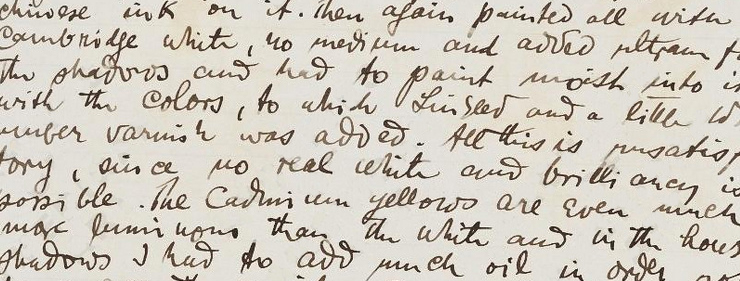 chinese ink on it. Then again painted all with
Cambridge white, no medium and added ultram
The shadows and had to paint moist into
with the colors, to which Linseed and a little
varnish was added. All this is unsatisf
tory, since no real white and brilliancy is
possible. The Cadmium yellows are even much
more luminous than the white and in the hous
shadows I had to add much oil in order